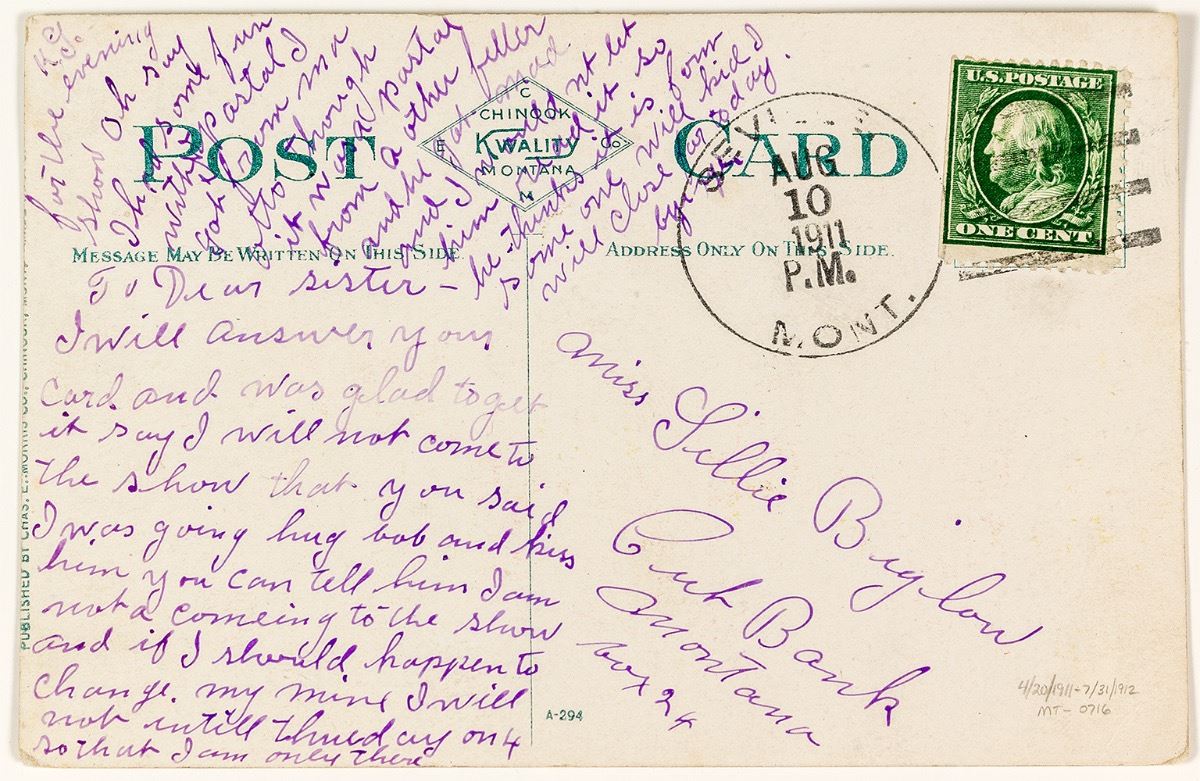 POST CARD
C
CHINOOK
E KWALITY Co
MONTANA
M
MESSAGE MAY BE WRITTEN ON THIS SIDE
ADDRESS ONLY ON THIS SIDE.
U.S. POSTAGE
ONE CENT
AUG
10
1911
P.M.
MONT.
To Dear sister –
I will answer your
card and was glad to get
it say I will not come to
the show that you said
I was going hug bob and kiss
him you can tell him I am
not a comeing to the show
and if I should happen to
change my mine I will
not intill thuesday on 4
so that I am only there
for the evening
show Oh say
I had some fun
with a postal I
got from ma
tho though
it was a postal
from a other feller
and he got mad
and I would nt let
him read it so
he thinks it is from
some one will kid I
will close will for
by to day.
Miss Lillie Bigelow
Cut Bank
Montana
box 24
PUBLISHED BY CHAS. E. MORRIS CO., CHINOOK, MONT.
A-294
4/20/1911-7/31/1912
MT- 0716